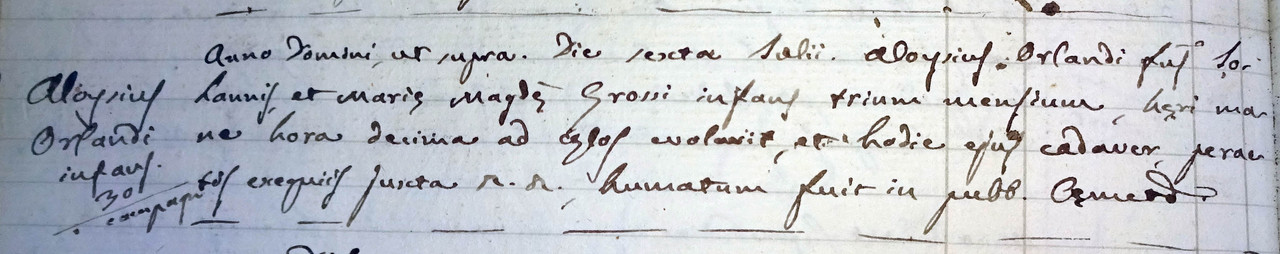 Anno Domini, ut supra. Die sexta Julii. Aloysius Orlandi fus Jo:
Aloysius hannis, et Marię Magdę Grossi infans trium mensium, hęri ma-
Orlandi ne hora decima ad cęlos evolavit, et hodie ejus cadaver, perac
infans. tis exequiis juxta R. R., humatum fuit in pubb. Cęmetο
30